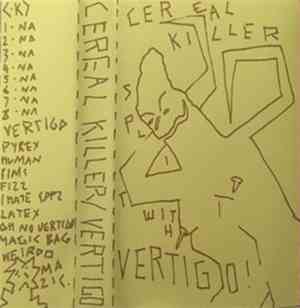 1-NA
2-NA
3-NA
4-NA
5-NA
6-NA
7-NA
8-NA
VERTIGO
PYREX
HUMAN
PIMS
FIZZ
I HATE
LATEX
OH NO VERTIGO
MAGIC BAG
WEIRDO
CEREAL KILLER/VERTIGO
CEREAL
KILLER
SPLIT
WITH
VERTIGO!